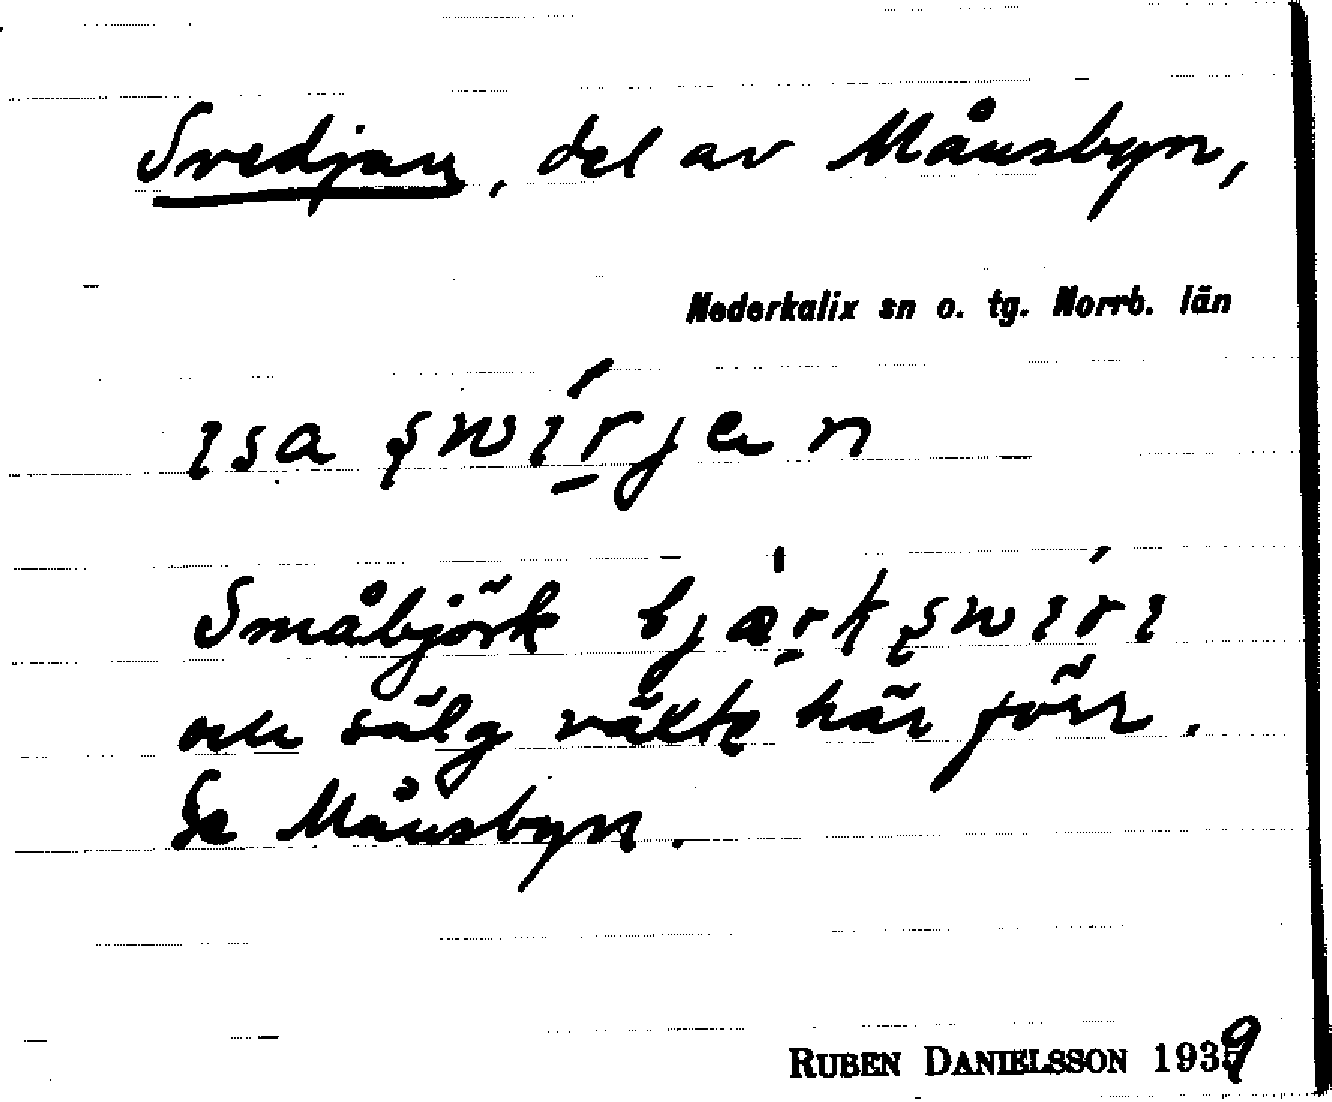 Svedjan, del av Månsbyn,
Nederkalix sn o. tg. Norrb. län
ısa
Småbjörk
och sälg växte här förr.
Se Månsbyn.
RUBEN DANIELSSON 1939